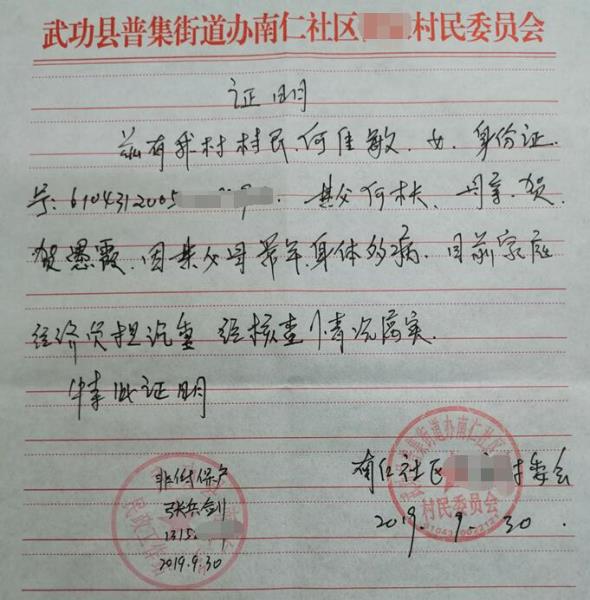 武功县普集街道办南仁社区 村民委员会
证明
兹有我村村民、何佳敏、女、身份证
号:6104312005 其父何林、母亲、贺
贺愚霞、因其父母常年身体多病、目前家庭
经济负担沉重 经核查情况属实.
特此证明
非低保户
1315
2019.9.30
南仁社区 村委会
2019.9.30.
街道办南仁社区
村民委员会